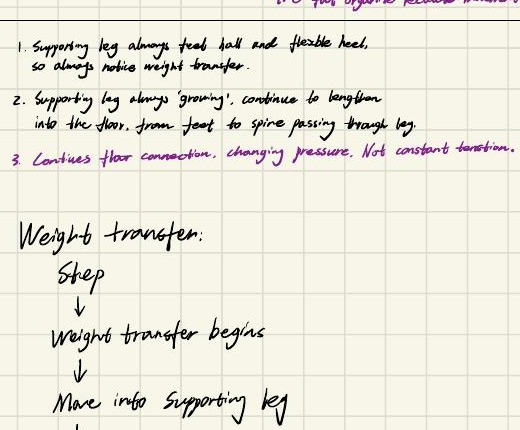 1. Supporting leg always feel ball and flexible heel,
so always notice weight transfer.
2. Supporting leg always 'growing', continue to lengthen
into the floor, from feet to spine passing through leg.
3. Continues floor connection, changing pressure, Not constant tenstion.
Weight transfer:
Step
↓
Weight transfer begins
↓
Move into supporting leg